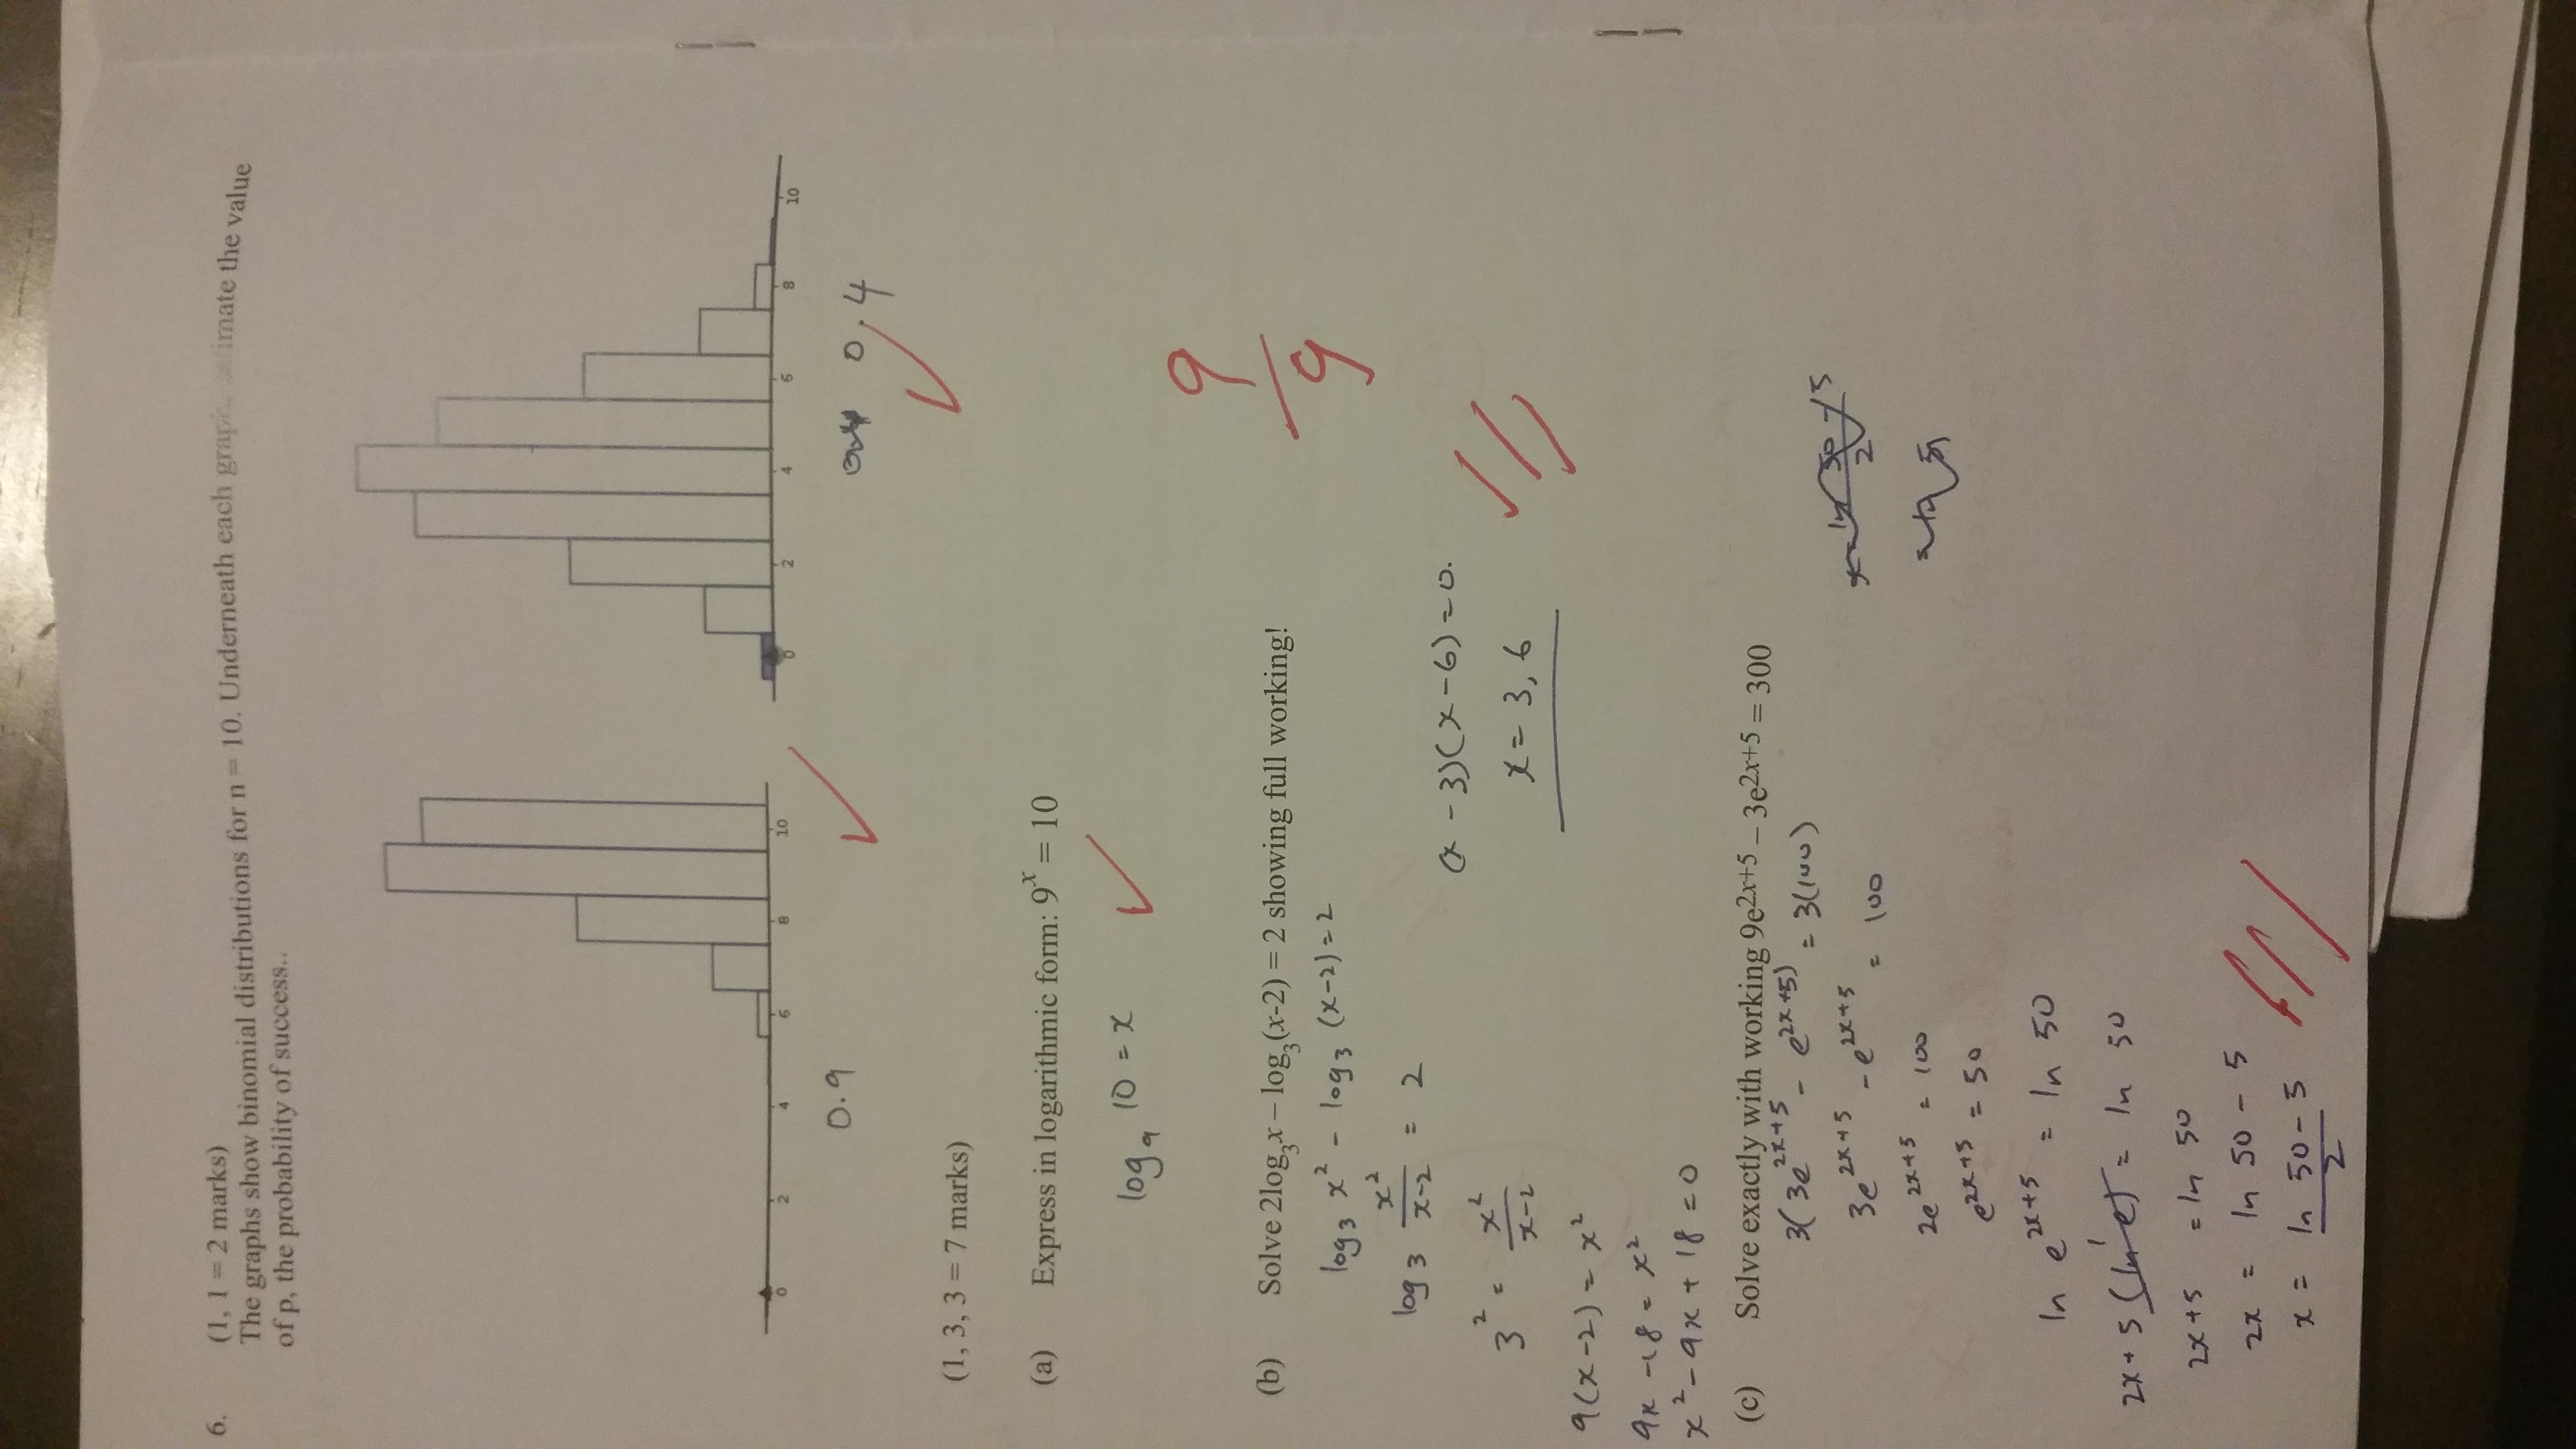 6. (1, 1 = 2 marks)
The graphs show binomial distributions for n = 10. Underneath each graph, estimate the value
of p, the probability of success..
0 2 4 6 8 10
0 2 4 6 8 10
0.9
0.4
(1, 3, 3 = 7 marks)
(a) Express in logarithmic form: 9ˣ = 10
log₉ 10 = x
9/9
(b) Solve 2log₃x – log₃(x-2) = 2 showing full working!
log₃ x² - log₃ (x-2) = 2
log₃ x²/(x-2) = 2
3² = x²/(x-2)
9(x-2) = x²
9x - 18 = x²
x² - 9x + 18 = 0
(x - 3)(x - 6) = 0.
x = 3, 6
(c) Solve exactly with working 9e2x+5 – 3e2x+5 = 300
3(3e^(2x+5) - e^(2x+5)) = 3(100)
3e^(2x+5) - e^(2x+5) = 100
2e^(2x+5) = 100
e^(2x+5) = 50
ln e^(2x+5) = ln 50
2x+5 (ln e) = ln 50
2x+5 = ln 50
2x = ln 50 - 5
x = (ln 50 - 5)/2